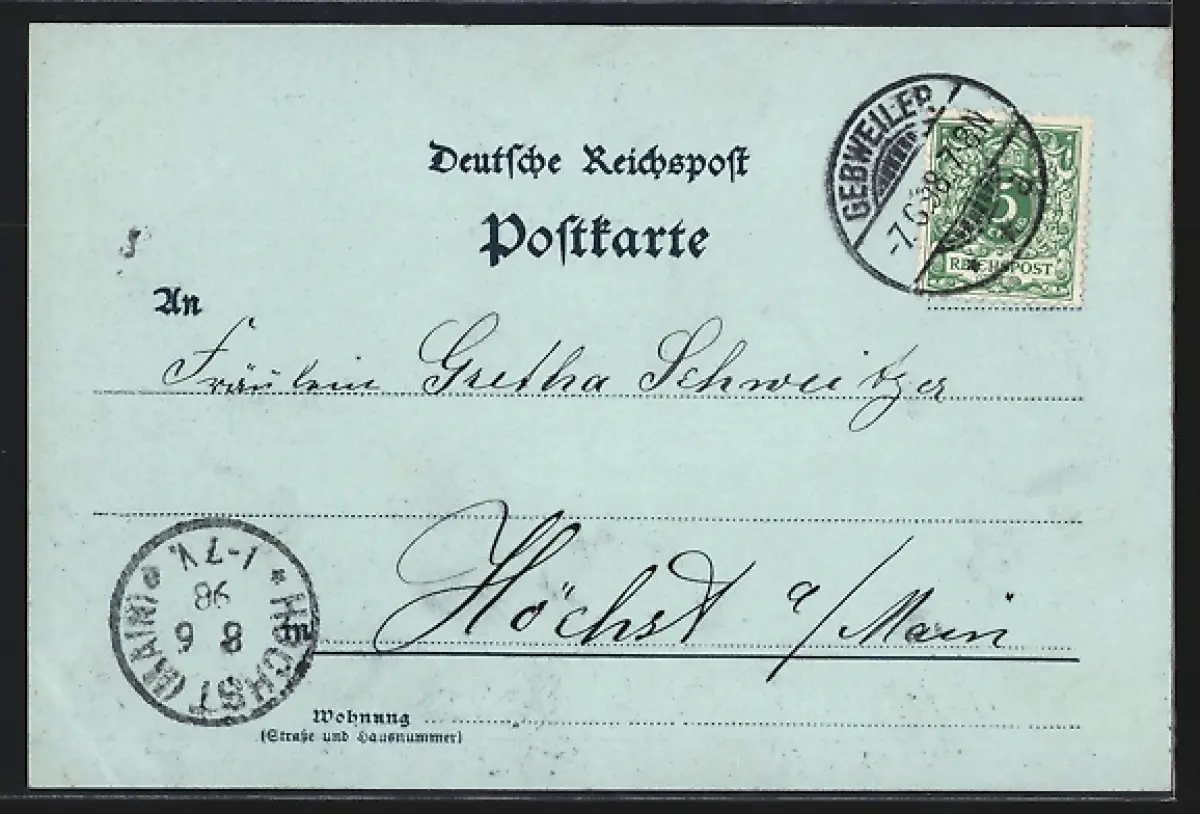 Deutsche Reichspost
Postkarte
GEBWEILER
-7.6.98.7-8N
5
REICHSPOST
An
Fräulein Gretha Schweitzer
Höchst a/Main
* HÖCHST (MAIN)
8 6
98
1-7V.
Wohnung
(Straße und Hausnummer)